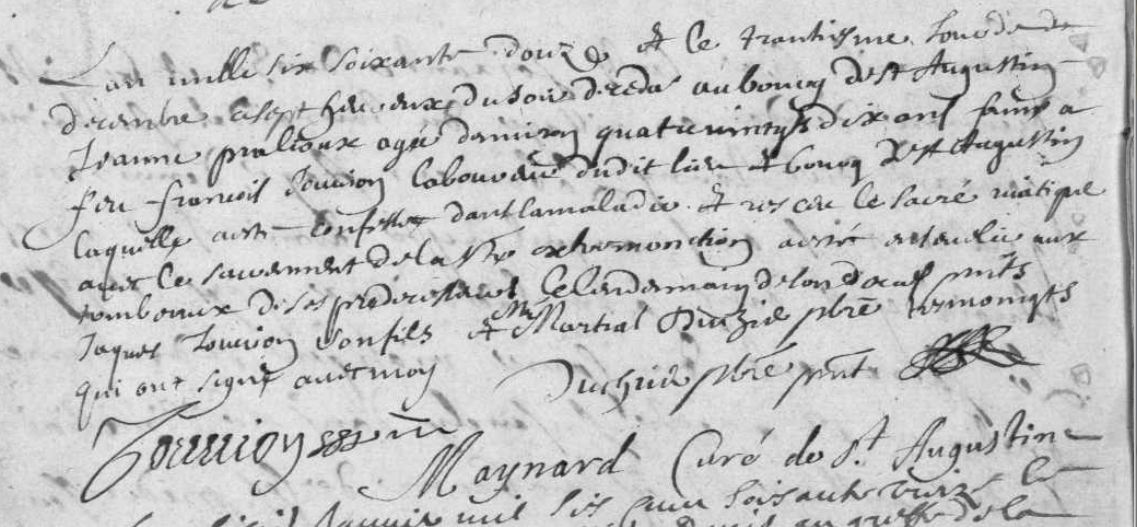 L'an mille six soixante douze & le trantiesme Jour de
decembre a sept heures du soir deceda au bourg de st Augustin
Jeanne pralioux agée d'environ quatre vingts dix ans femme a
feu françois Touvion laboureur dudit lieu & bourg de st Augustin
laquelle a esté confessée dant la maladie & resceu le sacré viatique
avec le sacrement de la extremonction a esté ensevelie aux
tombeaux de ses predecesseurs le lendemain de son deces pnts
Jaques Touvion son fils & Mre Martial Duchier pbre tesmoingts
qui ont signé avec moy Duchier pbre pnt
Touvion
Maynard Curé de St Augustin
Janvier mil six cens soixante treize le